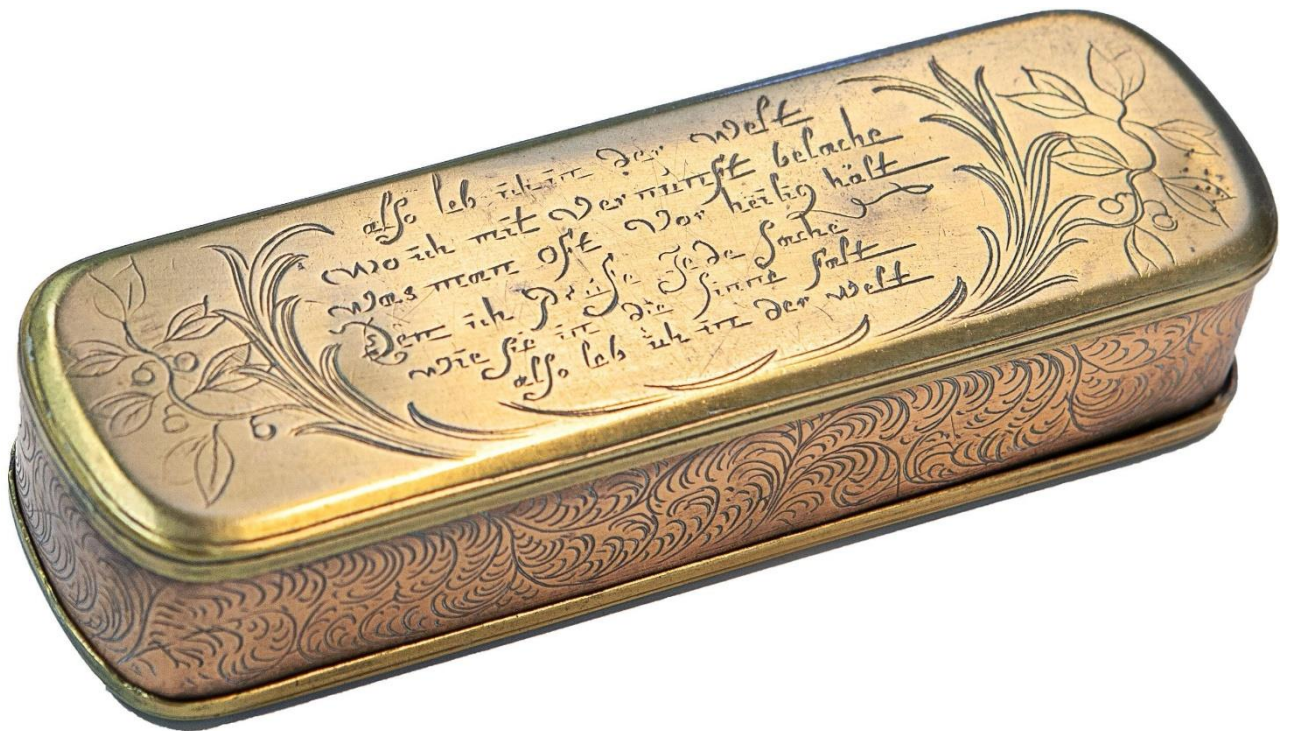 also leb ich in der Welt
Wo ich mit Vernunfft belache
Was man oft Vor heilig hält
Den ich Prüfe Jede Sache
Wie Sie in die Sinne falt
also leb ich in der Welt